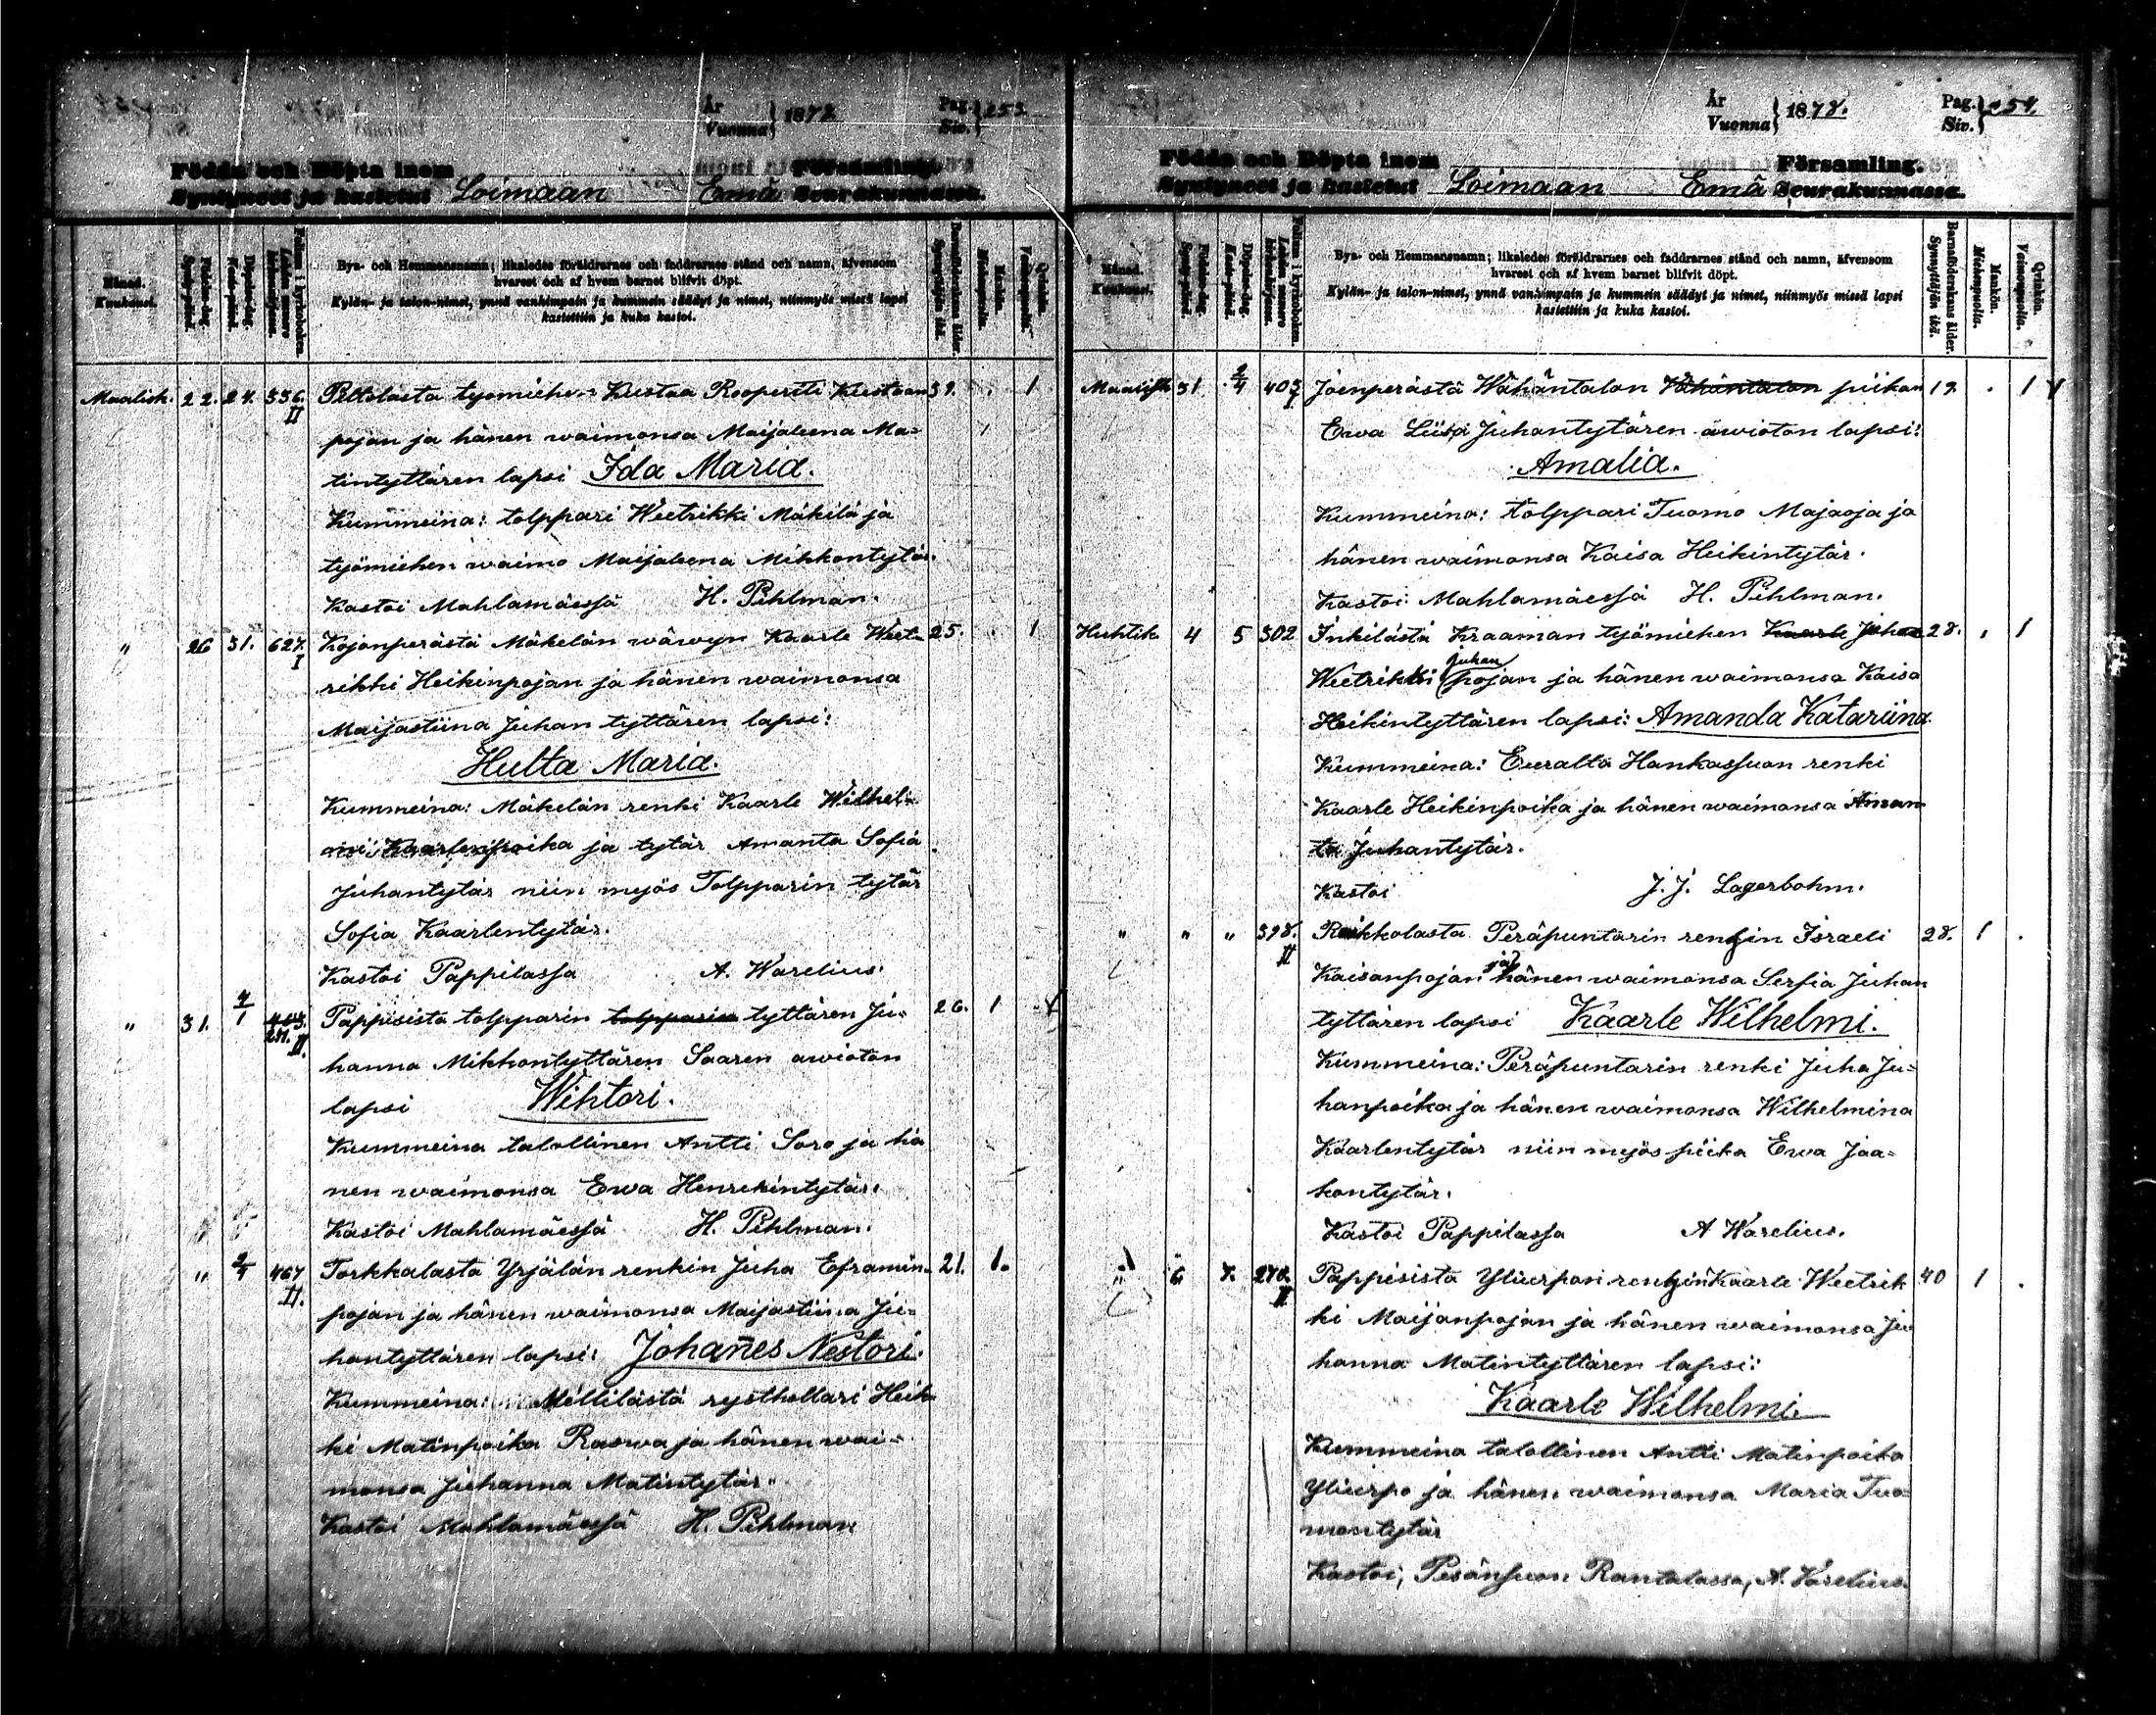 År
Vuonna } 1878. Pag. Siv. } 253.
Födda och Döpta inom Församling.
Syntyneet ja kastetut Loimaan Emä Seurakunnassa.
Månad. Kuukausi.
Födelse-dag. Synty-päivä.
Döpelse-dag. Kaste-päivä.
Folium i kyrkoboken.
Bya- och Hemmansnamn; likaledes föräldrarnes och faddrarnes stånd och namn, äfvensom
hvarest och af hvem barnet blifvit döpt.
Kylän- ja talon-nimet, ynnä vanhimpain ja kummein säädyt ja nimet, niinmyös missä lapsi
kastettiin ja kuka kastoi.
Barnaföderskans ålder. Synnyttäjän ikä.
Mankön. Miehenpuolia.
Qvinkön. Vaimonpuolia.
Maalisk. 22. 24. 556. II Peltolasta tyomiehen Kustaa Roopertti Kustaan 39. 1
pojan ja hänen waimonsa Maijaleena Ma-
tintyttären lapsi Ida Maria.
Kummeina: tolppari Weetrikki Mäkilä ja
työmiehen waimo Maijaleena Mikkontytär.
Kastoi Mahlamäessä H. Pihlman.
" 26 31. 627. I Kojonperästä Mäkelän wäwyn Kaarle Weet- 25. 1
rikki Heikinpojan ja hänen waimonsa
Maijastiina Juhan tyttären lapsi:
Hulta Maria.
Kummeina: Mäkelän renki Kaarle Wilhel-
mi Kaarlenpoika ja tytär Amanta Sofia
Juhantytär niin myös Tolpparin tytär
Sofia Kaarlentytär.
Kastoi Pappilassa A. Warelius.
" 31. 291. II. Pappisista tolpparin tolpparin tyttären Ju- 26. 1
hanna Mikkontyttären Saaren awioton
lapsi Wihtori.
Kummeina talollinen Antti Soro ja hä
nen waimonsa Ewa Henrekintytär.
Kastoi Mahlamäessä H. Pihlman.
" " 2/4 467 II. Torkkalasta Yrjälän renkin Juha Eframin- 21. 1.
pojan ja hänen waimonsa Maijastiina Ju-
hontyttären lapsi: Johañes Nestori.
Kummeina: Mellilästä rysthollari Heik
ki Matinpoika Raswa ja hänen wai-
monsa Juhanna Matintytär.
Kastoi Mahlamäessä H. Pihlman
År
Vuonna } 1878. Pag. Siv. } 254.
Födda och Döpta inom Församling.
Syntyneet ja kastetut Loimaan Emä Seurakunnassa.
Månad. Kuukausi.
Födelse-dag. Synty-päivä.
Döpelse-dag. Kaste-päivä.
Folium i kyrkoboken.
Bya- och Hemmansnamn; likaledes föräldrarnes och faddrarnes stånd och namn, äfvensom
hvarest och af hvem barnet blifvit döpt.
Kylän- ja talon-nimet, ynnä vanhimpain ja kummein säädyt ja nimet, niinmyös missä lapsi
kastettiin ja kuka kastoi.
Barnaföderskans ålder. Synnyttäjän ikä.
Mankön. Miehenpuolia.
Qvinkön. Vaimonpuolia.
Maalisk 31 2/4 405 I Joenperästä Wähäntalon Wähäntalon piikan 19. 1
Ewa Liisa Juhantytären äwioton lapsi:
Amalia.
Kummeina: tolppari Tuomo Majaoja ja
hänen waimonsa Kaisa Heikintytär.
Kastoi Mahlamäessä H. Pihlman.
Huhtik 4 5 302 Inkilästä Kraaman työmiehen Kaarle Juhan 28. 1
Weetrikki juhan pojan ja hänen waimonsa Kaisa
Heikintyttären lapsi: Amanda Katariina
Kummeina: Euralta Hankassuon renki
Kaarle Heikinpoika ja hänen waimonsa Aman
ta Juhantytär.
Kastoi J. J. Lagerbohm.
" " " 398. II Raikkolasta Peräpuntarin renkin Israeli 28. 1
Kaisanpojan ja hänen waimonsa Serfia Juhan
tyttären lapsi Kaarle Wilhelmi.
Kummeina: Peräpuntarin renki Juha Ju-
hanpoika ja hänen waimonsa Wilhelmina
Kaarlentytär niin myös piika Ewa Jaa-
kontytär.
Kastoi Pappilassa A Warelius.
" 6 7. 270. II Pappisista Yliurpon renkin Kaarle Weetrik 40 1
ki Maijanpojan ja hänen waimonsa Ju
hanna Matintyttären lapsi:
Kaarle Wilhelmi.
Kummeina talollinen Antti Matinpoika
Yliurpo ja hänen waimonsa Maria Tuo
montytär
Kastoi, Pesänsuon Rantalassa, A. Warelius.